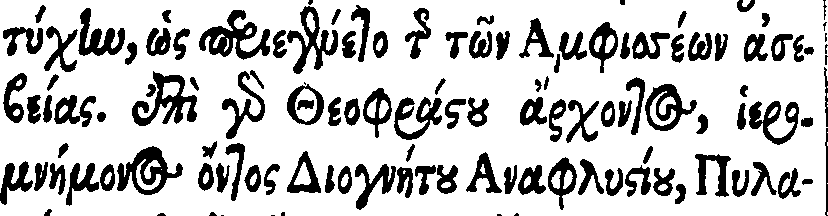 τύχην, ὡς περιεγένετο τῆς τῶν Αμφισσέων ἀσε-
βείας. Ἐπὶ γὰρ Θεοφράστου ἄρχοντος, ἱερο-
μνήμονος ὄντος Διογνήτου Αναφλυστίου, Πυλα-